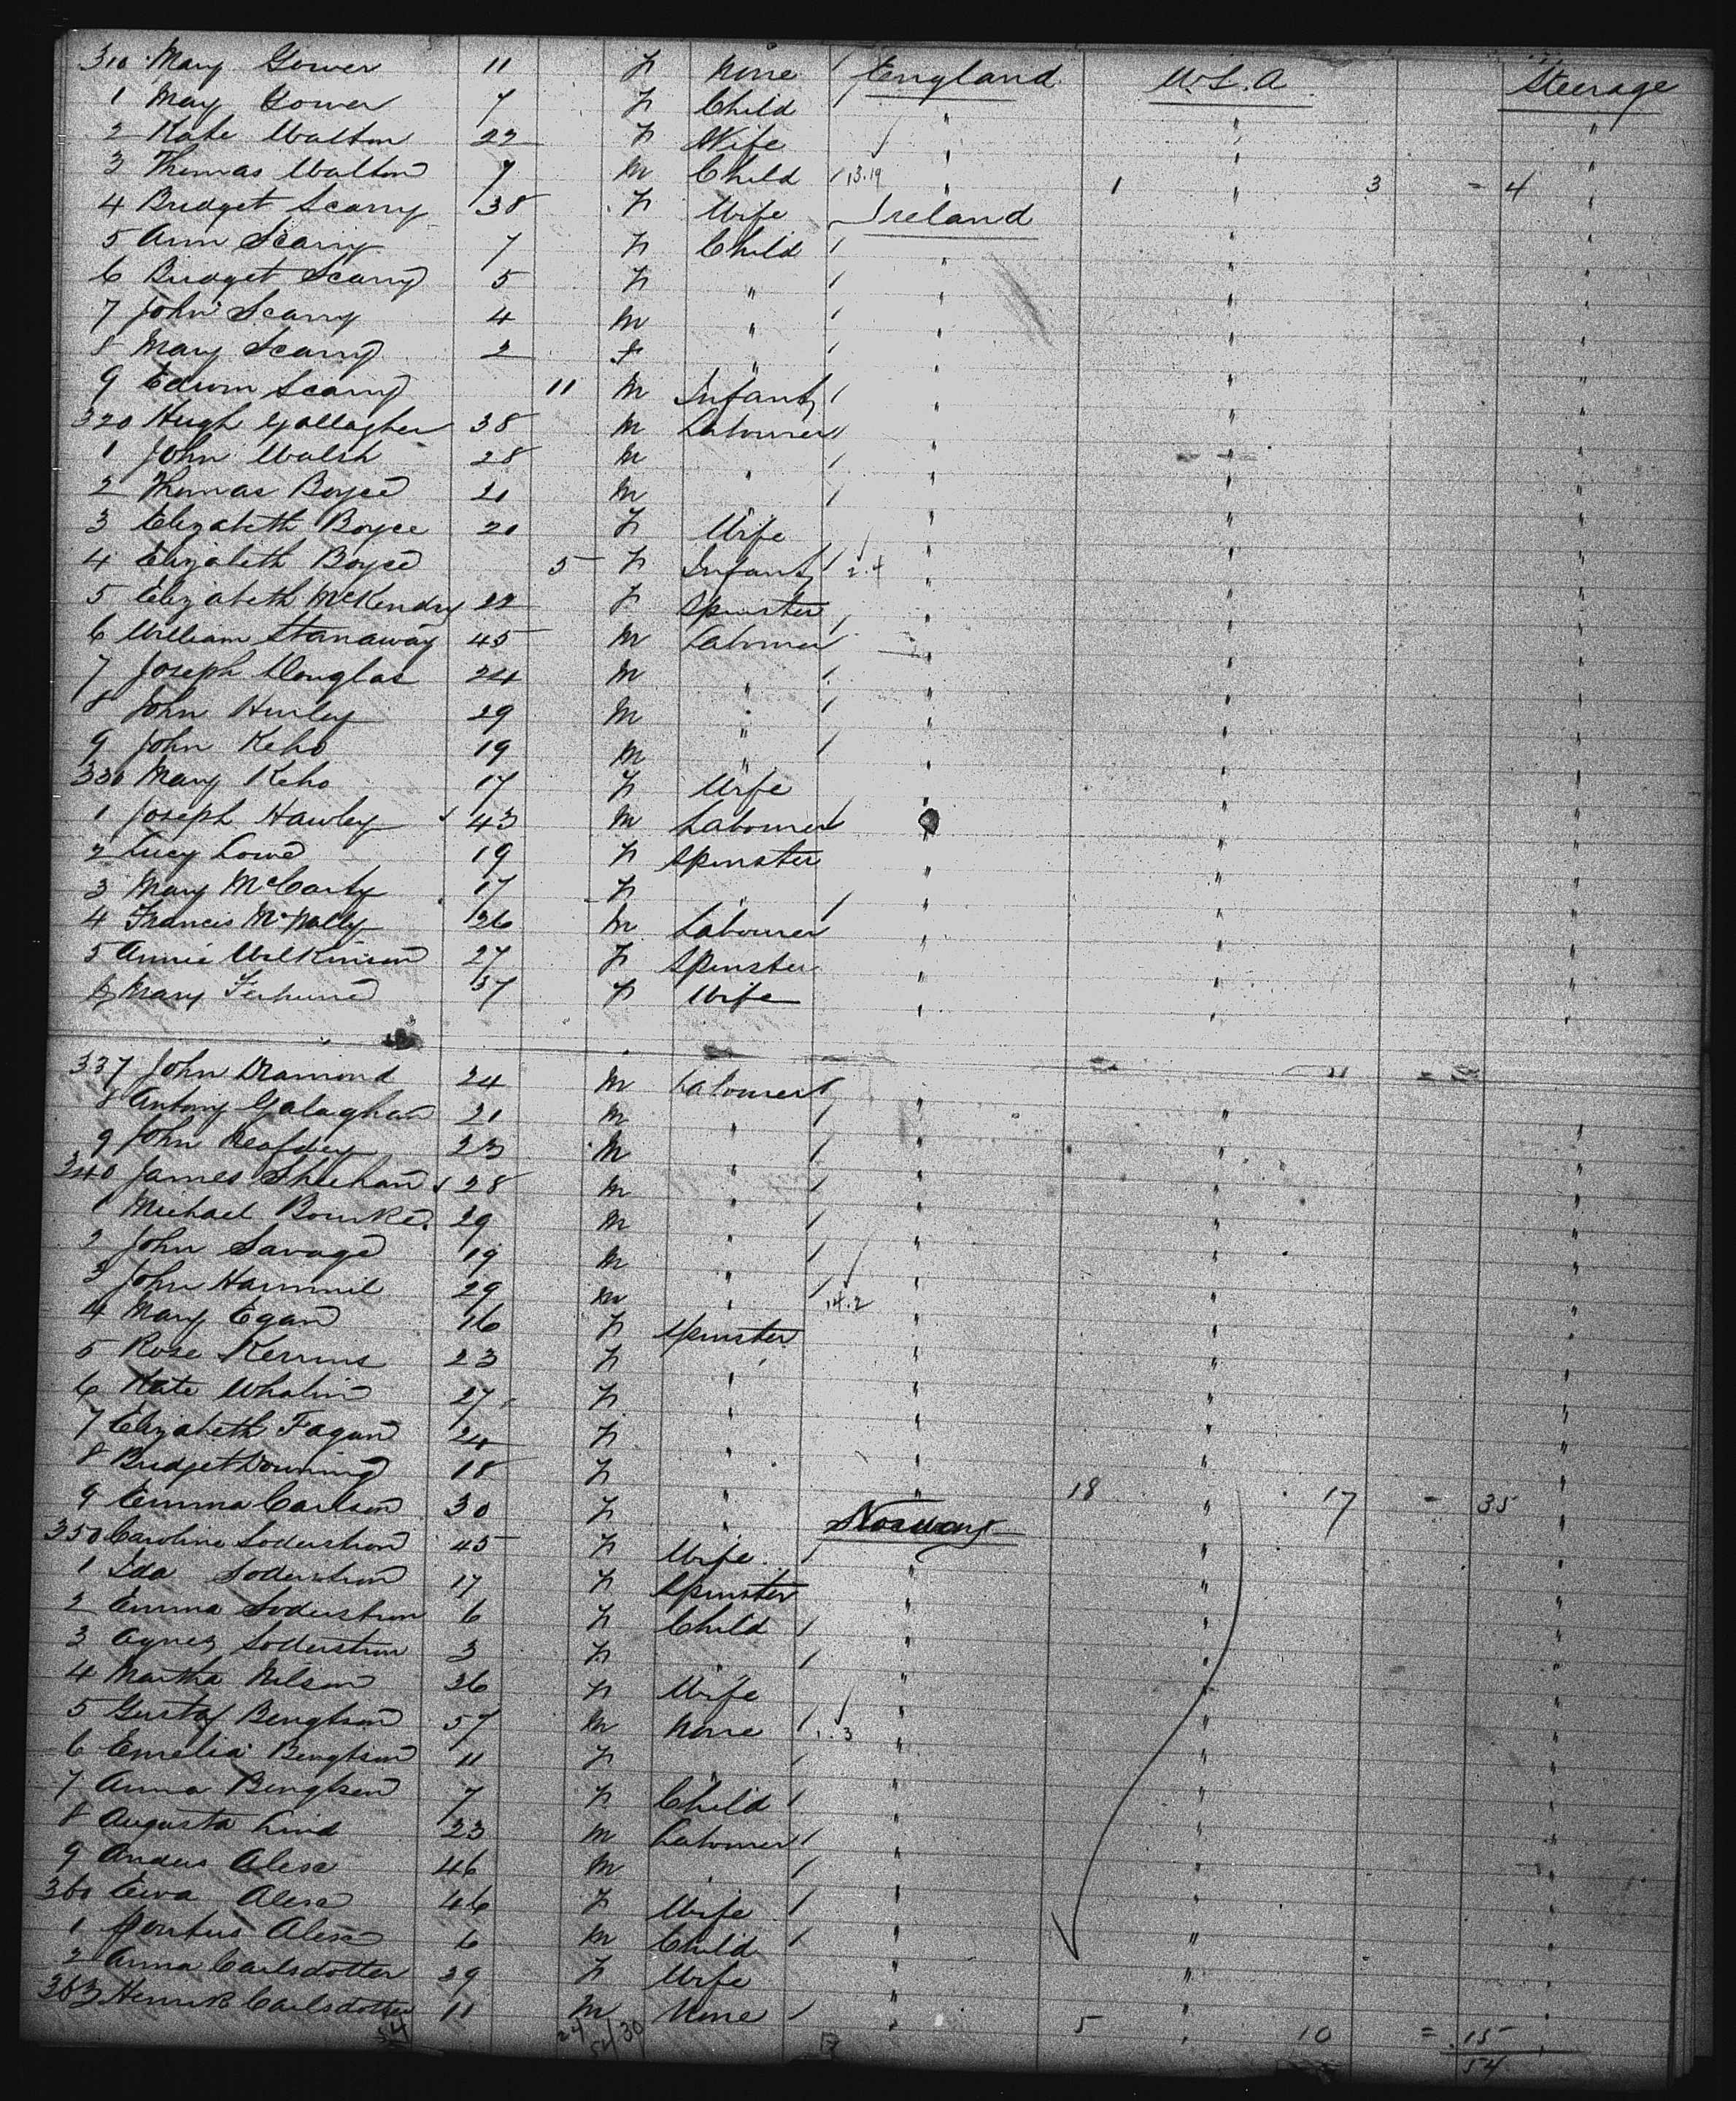 310 Mary Gower 11 F None England U.S.A Steerage
1 May Gower 7 F Child " " "
2 Kate Walton 22 F Wife " " "
3 Thomas Walton 7 M Child 13.19 " 1 " 3 = 4 "
4 Bridget Scarry 38 F Wife Ireland " "
5 Ann Scarry 7 F Child " " "
6 Bridget Scarry 5 F " " " "
7 John Scarry 4 M " " " "
8 Mary Scarry 2 F " " " "
9 Edwin Scarry 11 M Infant " " "
320 Hugh Gallagher 38 M Labourer " " "
1 John Walsh 28 M " " " "
2 Thomas Boyce 21 M " " " "
3 Elizabeth Boyce 20 F Wife " " "
4 Elizabeth Boyce 5 F Infant 2.4 " " "
5 Elizabeth McKendry 22 F Spinster " " "
6 William Stanaway 45 M Labourer " " "
7 Joseph Douglas 24 M " " " "
8 John Hurley 29 M " " " "
9 John Keho 19 M " " " "
330 Mary Keho 17 F Wife " " "
1 Joseph Hawley 43 M Labourer " " "
2 Lucy Lowe 19 F Spinster " " "
3 Mary McCarty 17 F " " " "
4 Francis McNally 26 M Labourer " " "
5 Annie Wilkinson 27 F Spinster " " "
6 Mary 37 F Wife " " "
337 John Diamond 24 M Labourer " " "
8 Antony Galaghan 21 M " " " "
9 John 23 M " " " "
340 James Sheehan 28 M " " " "
1 Michael Bourke 29 M " " " "
2 John Savage 19 M " " " "
3 John Hammil 29 M " 14.2 " " "
4 Mary Egan 16 F Spinster " " "
5 Rose Kerrins 23 F " " " "
6 Kate Whalin 27 F " " " "
7 Elizabeth Fagan 24 F " " " "
8 Bridget Downing 18 F " " 18 " 17 = 35 "
9 Emma Carlson 30 F " Norway " "
350 Caroline Soderstrom 45 F Wife " " "
1 Ida Soderstrom 17 F Spinster " " "
2 Emma Soderstrom 6 F Child " " "
3 Agnes Soderstrom 3 F " " " "
4 Martha Nilson 36 F Wife " " "
5 Gustaf Bengtson 57 M None 1.3 " " "
6 Emelia Bengtson 11 F " " " "
7 Anna Bengtson 7 F Child " " "
8 Augusta Lind 23 M Labourer " " "
9 Anders Olesa 46 M " " " "
360 Ewa Olesa 46 F Wife " " "
1 Pontus Olesa 6 M Child " " "
2 Anna Carlsdotter 29 F Wife " " "
363 Henrik Carlsdotter 11 M None " 5 " 10 = 15 "
54 24 30 54 54